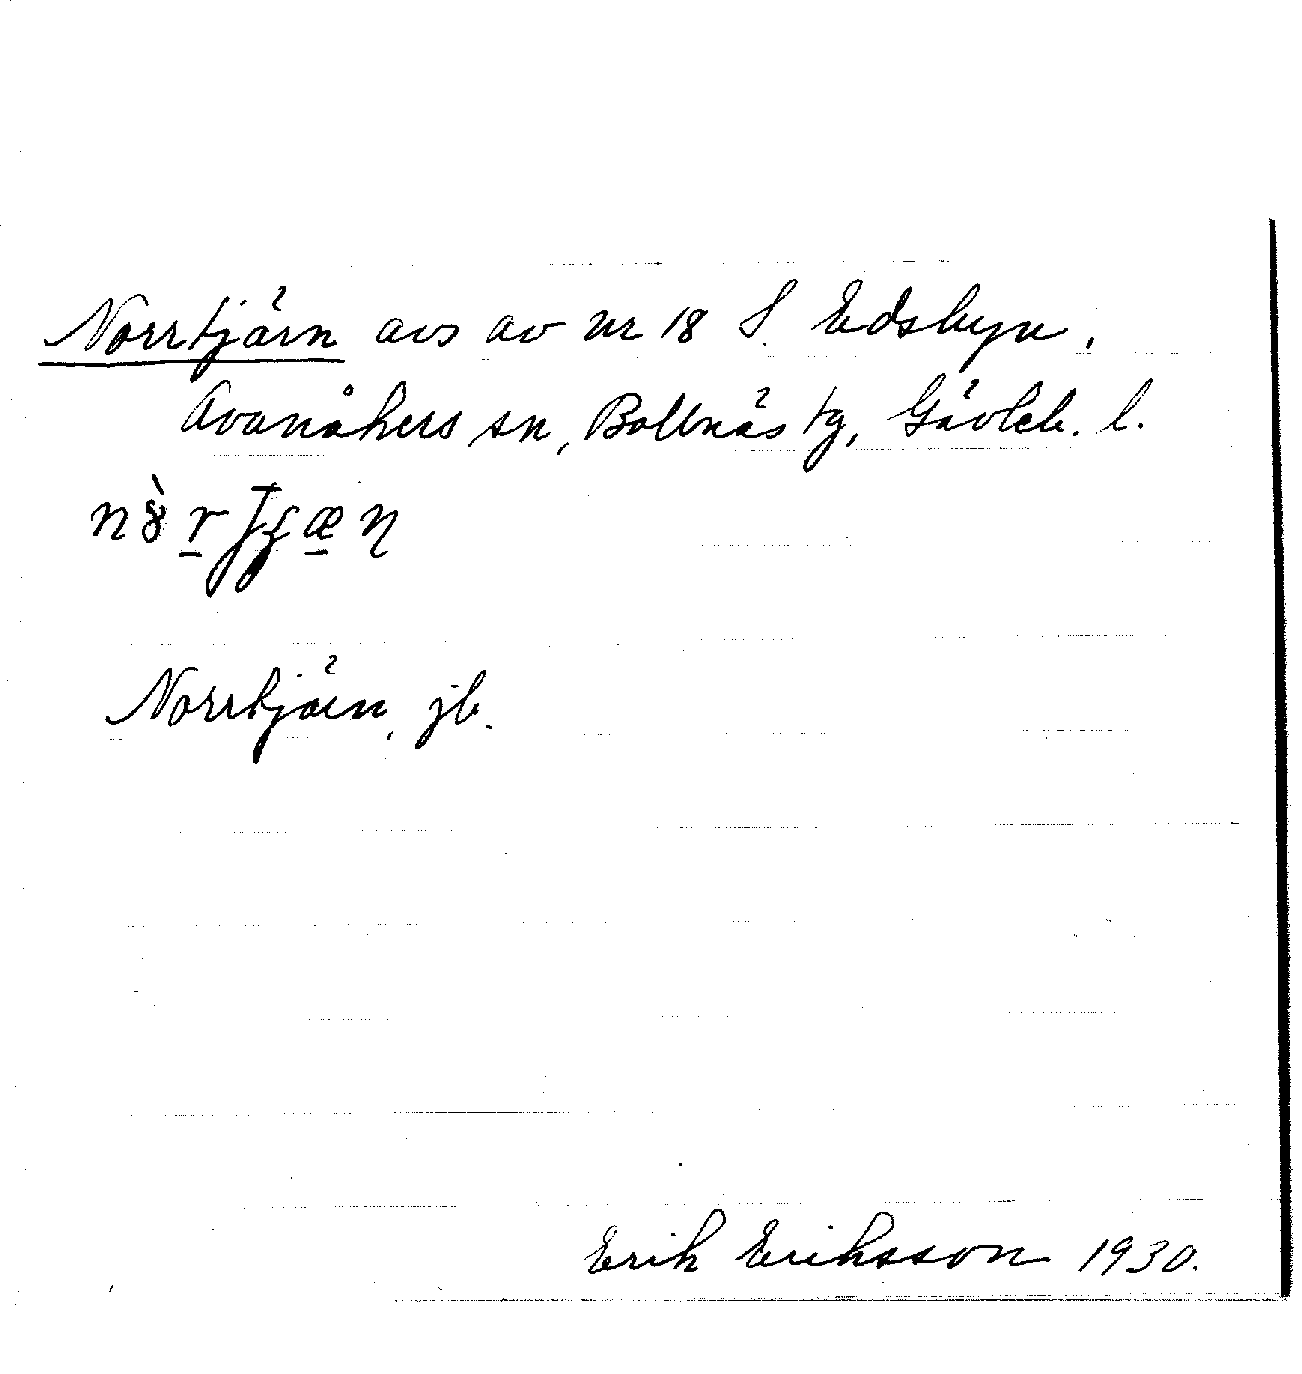 Norrtjärn avs av nr 18 S. Edsbyn,
Ovanåkers sn, Bollnäs tg, Gävleb. l.
Norrtjärn, jb.
Erik Eriksson 1930.